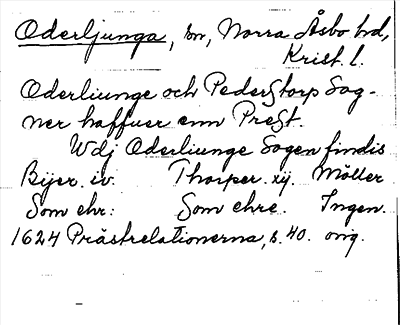 Oderljunga, sn, Norra Åsbo hd,
Krist. l.
Oderliunge och Pederstorp Sog-
ner haffuer enn Prest.
Wdj Oderliunge Sogen findis
Bijer. iv. Thorper. xij. Möller
Som ehr: Som ehre. Ingen.
1624 Prästrelationerna, s. 40. orig.